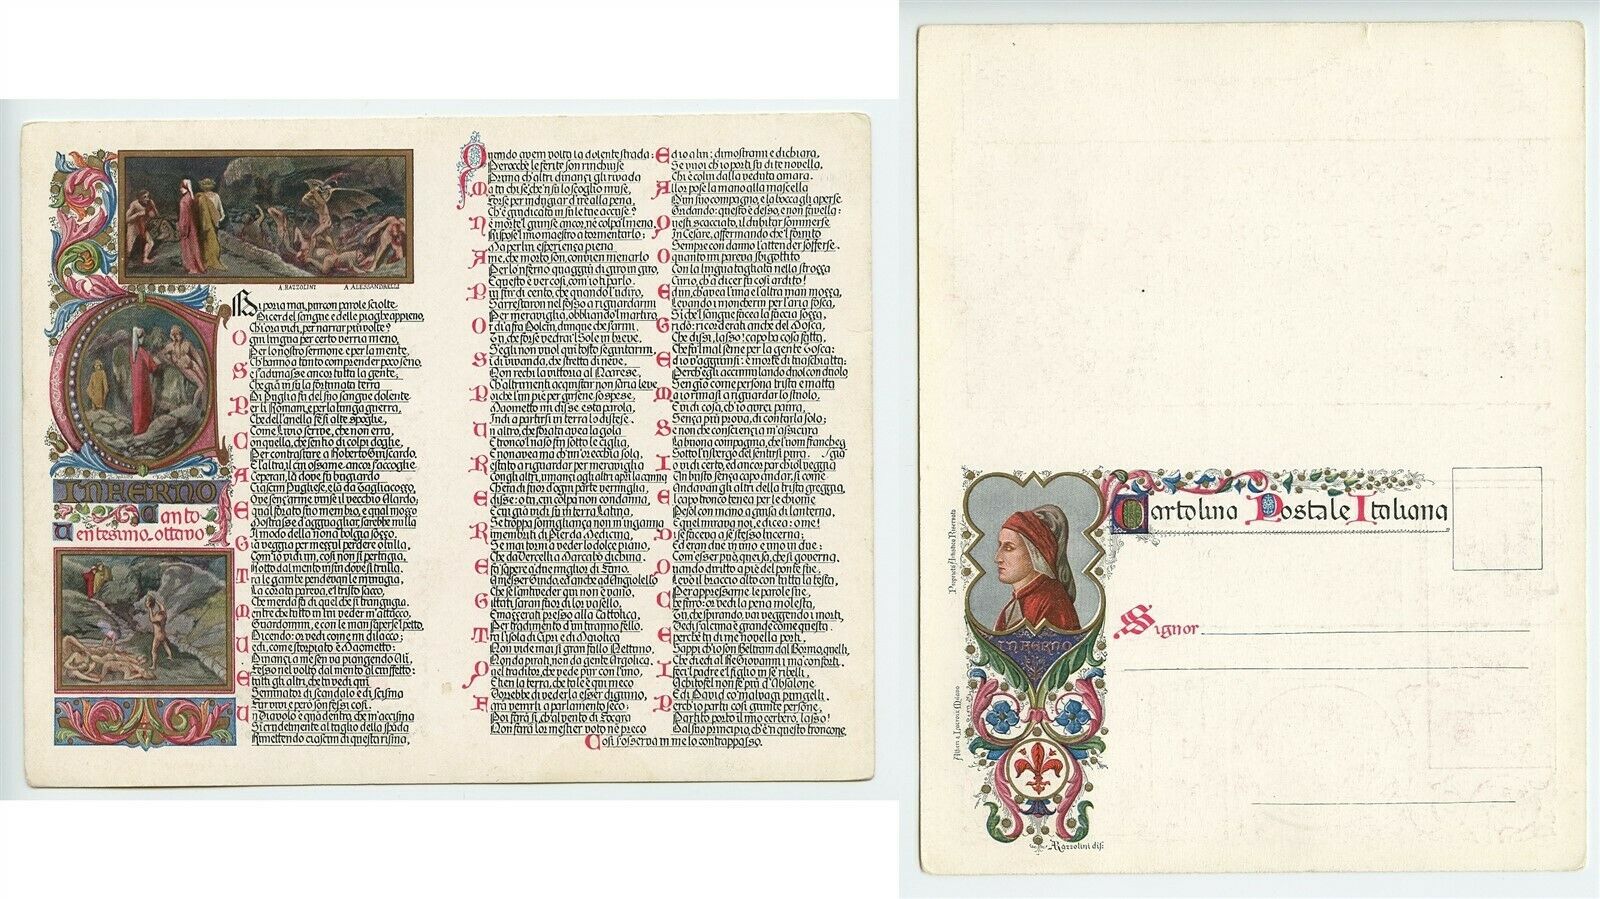 A. RAZZOLINI A. ALESSANDRELLI
INFERNO
Canto
Ventesimo ottavo
Chi poria mai pur con parole sciolte
Dicer del sangue e delle piaghe appieno,
Ch'i ora vidi, per narrar più volte?
Ogni lingua per certo verria meno,
Per lo nostro sermone e per la mente,
Ch'hanno a tanto comprender poco seno.
Se s'adunasse ancor tutta la gente,
Che già in su la fortunata terra
Di Puglia fu del suo sangue dolente
Per li Romani, e per la lunga guerra,
Che dell'anella fe' sì alte spoglie,
Come Livio scrive, che non erra,
Con quella, che sentio di colpi doglie,
Per contrastare a Roberto Guiscardo,
E l'altra, il cui ossame ancor s'accoglie
A Ceperan, là dove fu bugiardo
Ciascun Pugliese, e là da Tagliacozzo,
Ove senz'arme vinse il vecchio Alardo,
E qual forato suo membro, e qual mozzo
Mostrasse, d'agguagliar sarebbe nulla
Il modo della nona bolgia sozzo.
Già veggia per mezzul perdere o lulla,
Com'io vidi un, così non si pertugia,
Rotto dal mento insin dove si trulla.
Tra le gambe pendevan le minugia,
La corata pareva, e il tristo sacco,
Che merda fa di quel che si trangugia.
Mentre che tutto in lui veder m'attacco,
Guardommi, e con le man s'aperse il petto,
Dicendo: or vedi come mi dilacco;
Vedi, come storpiato è Maometto:
Dinanzi a me sen va piangendo Alì,
Fesso nel volto dal mento al ciuffetto:
E tutti gli altri, che tu vedi qui
Seminator di scandalo e di scisma
Fur vivi, e però son fessi così.
Un Diavolo è qua dentro, che n'accisma
Sì crudelmente, al taglio della spada
Rimettendo ciascun di questa risma,
Quando avem volta la dolente strada:
Perocchè le ferite son rinchiuse
Prima ch'altri dinanzi gli rivada
Ma tu chi se', che 'n su lo scoglio muse,
Forse per indugiar d'ire alla pena,
Ch'è giudicata in su le tue accuse?
Nè morte 'l giunse ancor, nè colpa 'l mena,
Rispose il mio maestro, a tormentarlo:
Ma per lui esperienza piena
A me, che morto son, convien menarlo
Per lo 'nferno quaggiù di giro in giro,
E questo è ver così, com'io ti parlo.
Più fur di cento, che quando l'udiro,
S'arrestaron nel fosso a riguardarmi
Per meraviglia, obbliando 'l martiro.
Or di' a fra Dolcin, dunque che s'armi,
Tu, che forse vedrai 'l Sole in breve,
S'egli non vuol qui tosto seguitarmi,
Sì di vivanda, che stretta di neve
Non rechi la vittoria al Noarese,
Ch'altrimenti acquistar non saria leve
Poichè l'un piè per girsene sospese,
Maometto mi disse esta parola,
Indi a partirsi in terra lo distese.
Un altro, che forata avea la gola
E tronco 'l naso fin sotto le ciglia,
E non avea ma' ch'un'orecchia sola,
Restato a riguardar per meraviglia
Con gli altri, innanzi agli altri aprì la canna
Ch'era di fuor d'ogni parte vermiglia,
E disse: o tu, cui colpa non condanna
E cui già vidi su in terra Latina,
Se troppa somiglianza non m'inganna
Rimembriti di Pier da Medicina,
Se mai torni a veder lo dolce piano,
Che da Vercella a Marcabò dichina.
E fa sapere a' due miglior di Fano,
A messer Guido, ed anche ad Angiolello
Che se l'antiveder qui non è vano,
Gittati saran fuor di lor vasello,
E mazzerati presso alla Cattolica,
Per tradimento d'un tiranno fello.
Tra l'isola di Cipri e di Maiolica
Non vide mai sì gran fallo Nettuno,
Non da pirati, non da gente Argolica.
Quel traditor, che vede pur con l'uno,
E tien la terra, che tal è qui meco
Vorrebbe di vederla esser digiuno,
Farà venirli a parlamento seco:
Poi farà sì, ch'al vento di Focara
Non farà lor mestier voto nè preco
Ed io a lui: dimostrami e dichiara,
Se vuoi ch'io porti su di te novella,
Chi è colui dalla veduta amara.
Allor pose la mano alla mascella
D'un suo compagno, e la bocca gli aperse
Gridando: questo è desso, e non favella:
Questi scacciato, il dubitar sommerse
In Cesare, affermando che 'l fornito
Sempre con danno l'attender sofferse.
O quanto mi pareva sbigottito
Con la lingua tagliata nella strozza
Curio, ch'a dicer fu così ardito!
Ed un, ch'avea l'una e l'altra man mozza,
Levando i moncherin per l'aria fosca,
Sì che 'l sangue facea la faccia sozza,
Gridò: ricorderati anche del Mosca,
Che dissi, lasso! capo ha cosa fatta,
Che fu 'l mal seme per la gente Tosca:
Ed io v'aggiunsi: e morte di tua schiatta:
Perch'egli accumulando duol con duolo
Sen gìo come persona trista e matta
Ma io rimasi a riguardar lo stuolo,
E vidi cosa, ch'io avrei paura,
Senza più prova, di contarla solo;
Se non che coscienza m'assicura
La buona compagna, che l'uom francheggia
Sotto l'usbergo del sentirsi pura.
Io vidi certo, ed ancor par ch'io 'l veggia
Un busto senza capo andar, sì come
Andavan gli altri della trista greggia,
E 'l capo tronco tenea per le chiome
Pesol con mano a guisa di lanterna,
E quel mirava noi, e dicea: o me!
Di sè faceva a sè stesso lucerna:
Ed eran due in uno e uno in due:
Com'esser può, quei sa, che sì governa.
Quando diritto a piè del ponte fue,
Levò il braccio alto con tutta la testa,
Per appressarne le parole sue,
Che furo: or vedi la pena molesta,
Tu, che spirando vai veggendo i morti,
Vedi s'alcuna è grande come questa
E perchè tu di me novella porti,
Sappi ch'io son Beltram dal Bornio, quelli,
Che diedi al Re Giovanni i ma' conforti.
I' feci il padre e 'l figlio in sè ribelli
Achitofel non fe' più d'Absalone
E di David co' malvagi punzelli.
Perch'io partì così giunte persone,
Partito porto il mio cerebro, lasso!
Dal suo principio, ch'è 'n questo troncone
Così s'osserva in me lo contrappasso.
Cartolina Postale Italiana
Proprietà Artistica Riservata
INFERNO
Signor
Alfieri & Lacroix Milano
A. Razzolini dis.